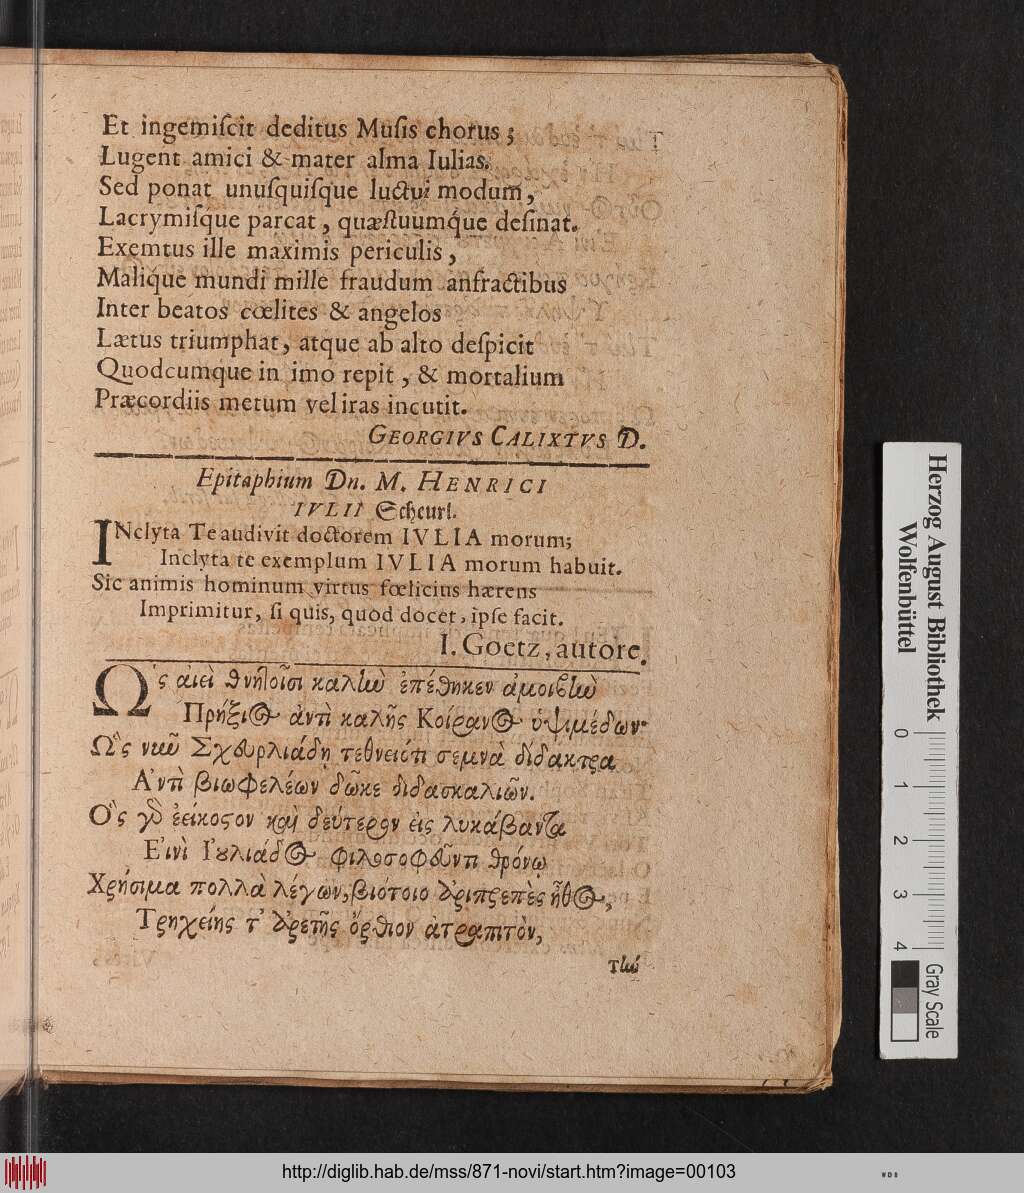 Et ingemiſcit deditus Muſis chorus;
Lugent amici & mater alma Iulias.
Sed ponat unuſquiſque luctui modum,
Lacrymiſque parcat, quæſtuumq́ue deſinat.
Exemtus ille maximis periculis,
Malique mundi mille fraudum anfractibus
Inter beatos cœlites & angelos
Lætus triumphat, atque ab alto deſpicit
Quodcumque in imo repit, & mortalium
Præcordiis metum vel iras incutit.
GEORGIVS CALIXTVS D.
Epitaphium Dn. M. HENRICI
IVLII Scheurl.
INclyta Te audivit doctorem IVLIA morum;
Inclyta te exemplum IVLIA morum habuit.
Sic animis hominum virtus fœlicius hærens
Imprimitur, ſi quis, quod docet, ipſe facit.
I. Goetz, autore.
Ὡς αἰεὶ θνητοῖσι καλὴν ἐπέθηκεν ἀμοιβὴν
Πρήξιος ἀντὶ καλῆς Κοίρανος ὑψιμέδων·
Ὣς νῦν Σχουρλιάδῃ τεθνειότι σεμνὰ δίδακτρα
Ἀντὶ βιωφελέων δῶκε διδασκαλιῶν.
Ὃς γὰρ ἐείκοσον καὶ δεύτερον εἰς λυκάβαντα
Εἰνὶ Ἰουλιάδος φιλοσοφοῦντι θρόνῳ
Χρήσιμα πολλὰ λέγων, βιότοιο ἀριπρεπὲς ἦθος,
Τρηχείης τ' ἀρετῆς ὄρθιον ἀτραπιτὸν,
Τὴν
Herzog August Bibliothek
Wolfenbüttel
0 1 2 3 4
Gray Scale
http://diglib.hab.de/mss/871-novi/start.htm?image=00103